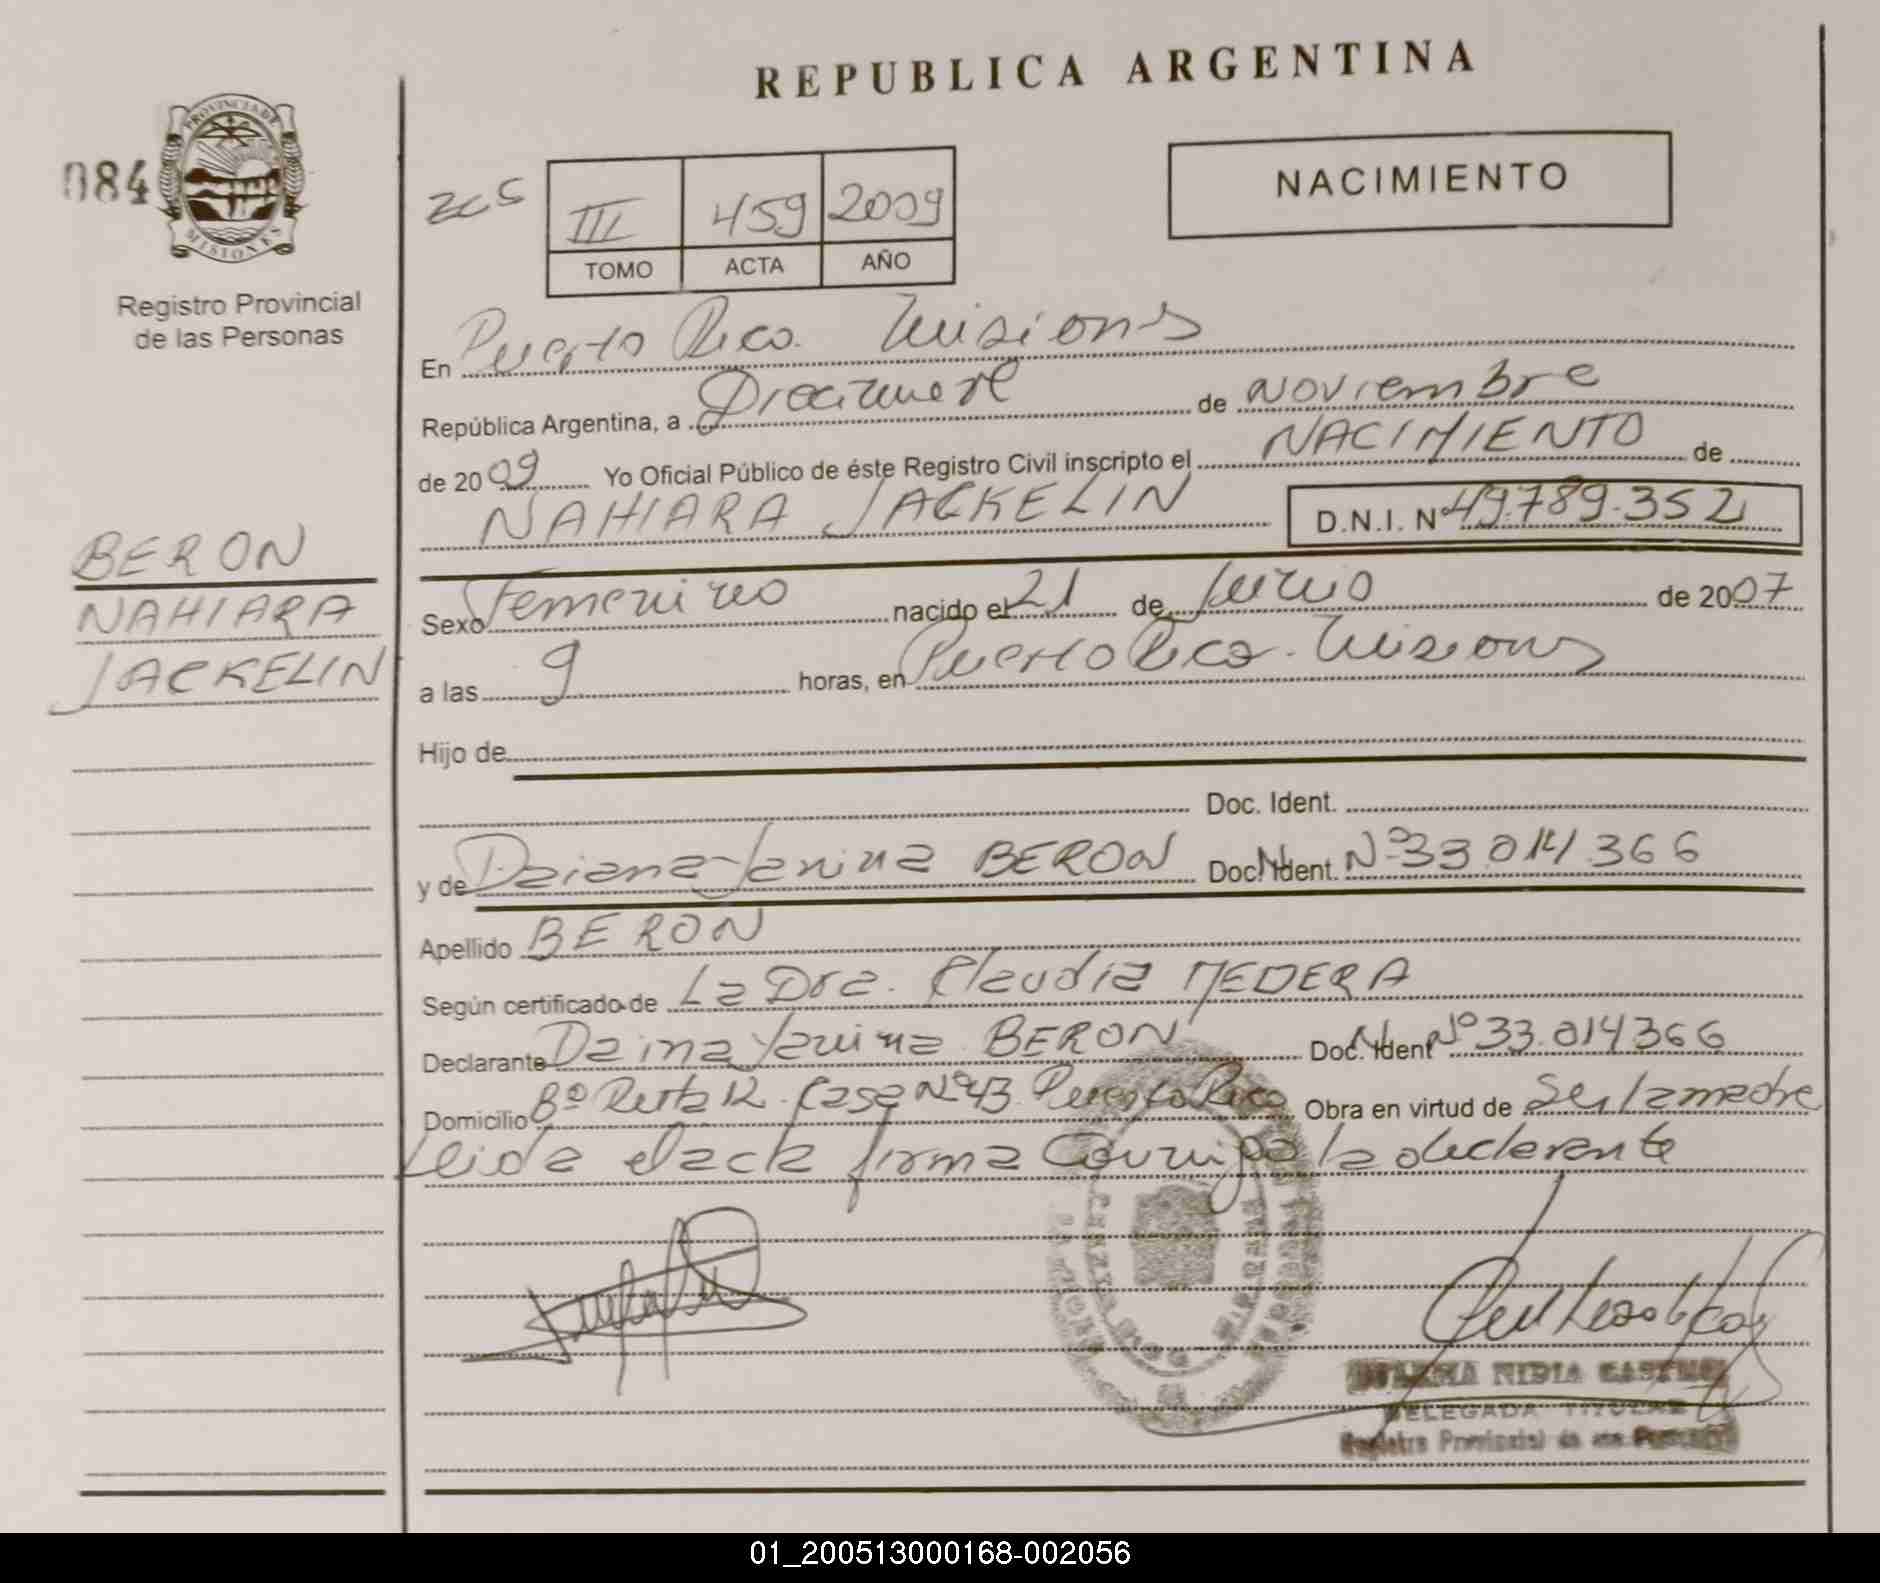 REPUBLICA ARGENTINA
PROVINCIA DE
MISIONES
084
Registro Provincial
de las Personas
III 459 2009
TOMO ACTA AÑO
NACIMIENTO
En Puerto Rico. Misiones
República Argentina, a Diecinueve de Noviembre
de 2009 Yo Oficial Público de éste Registro Civil inscripto el NACIMIENTO de
NAHIARA JACKELIN D.N.I. Nº 49.789.352
BERON
NAHIARA
JACKELIN
Sexo Femenino nacido el 21 de Junio de 2007
a las 9 horas, en Puerto Rico. Misiones
Hijo de
Doc. Ident.
y de Daiana Yanina BERON Doc. Ident. Nº 33.014.366
Apellido BERON
Según certificado de La Dra. Claudia MEDERA
Declarante Daina Yanina BERON Doc. Ident Nº 33.014366
Domicilio Bº Ruta 12. Casa Nº 43. Puerto Rico Obra en virtud de Ser la madre
Leida el acta firma Conmigo la declarante
NIDIA
DELEGADA TITULAR
Registro Provincial de las Personas
01_200513000168-002056